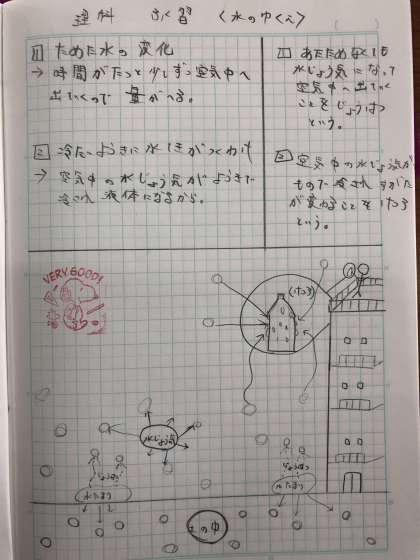 理科 ふく習 〈水のゆくえ〉
( )
1 ためた水の変化
→時間がたつと少しずつ空気中へ
出ていくので量がへる。
2 冷たいようきに水てきがつくわけ
→空気中の水じょう気がようきで
冷され液体になるから。
1 あたためなくても
水じょう気になって
空気中へ出ていく
ことをじょうはつ
という。
2 空気中の水じょう気が
もので冷され すがた
が変わることをけつろ
という。
VERY GOOD!
(けつろ)
水じょう気
じょうはつ
水たまり
じょうはつ
水たまり
土の中